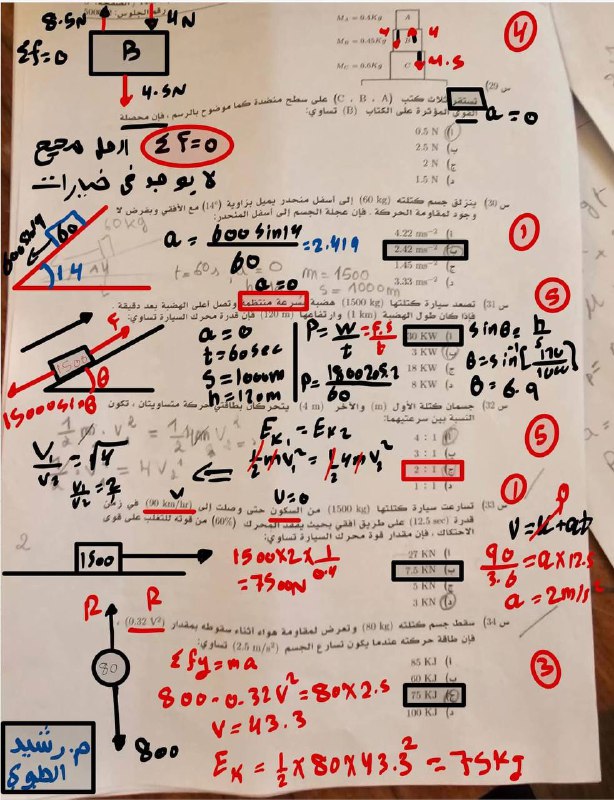 رقم الجلوس:
8.5N 4N
Σf=0 B
4.5N
M_A = 0.4Kg A
M_B = 0.45Kg B
M_C = 0.6Kg C
4 4
4.5
4
س 29)
تستقر ثلاث كتب (C ، B ، A) على سطح منضدة كما موضوح بالرسم ، فإن محصلة
القوى المؤثرة على الكتاب (B) تساوي:
a = 0
Σf=0
لا يوجد في خيارات
أ) 0.5 N
ب) 2.5 N
ج) 2 N
د) 1.5 N
س 30) ينزلق جسم كتلته (60 kg) إلى أسفل منحدر يميل بزاوية (14°) مع الأفقي وبفرض لا
وجود لمقاومة الحركة . فإن عجلة الجسم إلى أسفل المنحدر:
600sin14 60 14
60kg
a = 600 sin14 / 60 = 2.419
1
أ) 4.22 ms⁻²
ب) 2.42 ms⁻²
ج) 1.45 ms⁻²
د) 3.33 ms⁻²
t = 60s a = 0 m = 1500
s = 1000m
a=0
س 31) تصعد سيارة كتلتها (1500 kg) هضبة بسرعة منتظمة وتصل أعلى الهضبة بعد دقيقة .
فإذا كان طول الهضبة (1 km) وارتفاعها (120 m) فإن قدرة محرك السيارة تساوي:
5
F 1500 θ
15000sinθ
a = 0
t = 60sec
S = 1000m
h = 120m
P = W/t = F.S/t
P = 1800205.2 / 60
أ) 30 KW
ب) 3 KW
ج) 18 KW
د) 8 KW
sinθ = h/s
θ = sin⁻¹[120/1000]
θ = 6.9
س 32) جسمان كتلة الأول (m) والآخر (4 m) يتحركان بطاقتي حركة متساويتان ، تكون
النسبة بين سرعتيهما:
5
E_K1 = E_K2
½ m V₁² = ½ 4m V₂²
V₁/V₂ = √4
V₁/V₂ = 2/1
أ) 4 : 1
ب) 3 : 1
ج) 2 : 1
د) 1 : 1
V=0 V
س 33) تسارعت سيارة كتلتها (1500 kg) من السكون حتى وصلت إلى (90 km/hr) في زمن
قدرة (12.5 sec) على طريق أفقي بحيث يفقد المحرك (60%) من قوته للتغلب على قوى
الاحتكاك ، فإن مقدار قوة محرك السيارة تساوي:
1
2
1500
1500×2×1/0.4
=7500N
أ) 27 KN
ب) 7.5 KN
ج) 5 KN
د) 3 KN
V = u + at
90/3.6 = a×12.5
a = 2m/s²
س 34) سقط جسم كتلته (80 kg) وتعرض لمقاومة هواء أثناء سقوطه بمقدار (0.32 V²) ،
فإن طاقة حركته عندما يكون تسارع الجسم (2.5 m/s²) تساوي:
3
R R
80
800
Σfy = ma
800 - 0.32V² = 80×2.5
V = 43.3
E_K = ½ × 80 × 43.3² = 75kg
أ) 85 KJ
ب) 60 KJ
ج) 75 KJ
د) 100 KJ
م. رشيد
الطوي